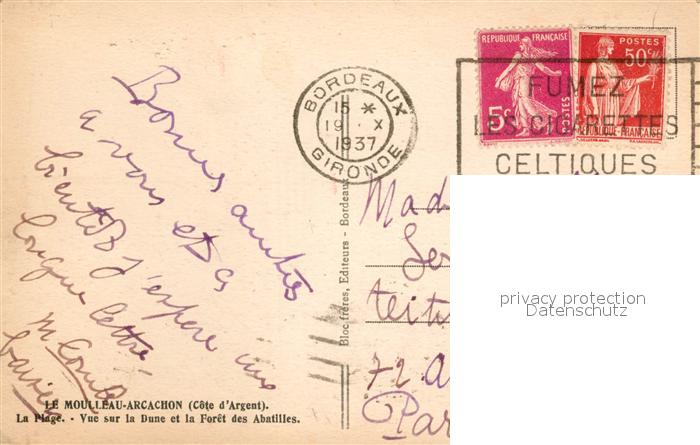 RÉPUBLIQUE FRANÇAISE
5c
POSTES
POSTES
50c
RÉPUBLIQUE-FRANÇAISE
BORDEAUX
15 *
19 X
1937
GIRONDE
FUMEZ
LES CIGARETTES
CELTIQUES
Bonnes amitiés
a vous et a
bientôt j'espere une
longue lettre
Mad
72 A
Par
Bloc frères, Editeurs - Bordeaux
privacy protection
Datenschutz
LE MOULLEAU-ARCACHON (Côte d'Argent).
La Plage. - Vue sur la Dune et la Forêt des Abatilles.